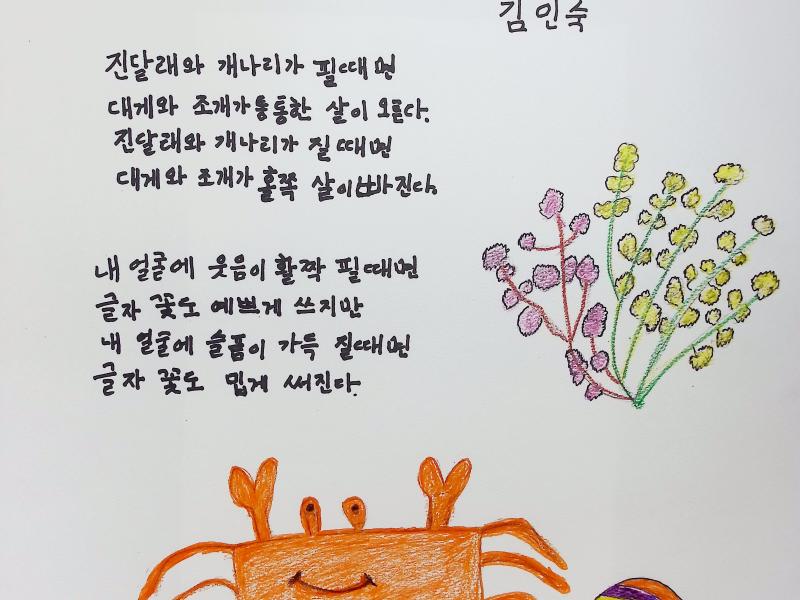 김인숙
진달래와 개나리가 필때면
대게와 조개가 통통한 살이 오른다.
진달래와 개나리가 질때면
대게와 조개가 홀쭉 살이 빠진다.
내 얼굴에 웃음이 활짝 필때면
글자 꽃도 예쁘게 쓰지만
내 얼굴에 슬픔이 가득 질때면
글자 꽃도 밉게 써진다.